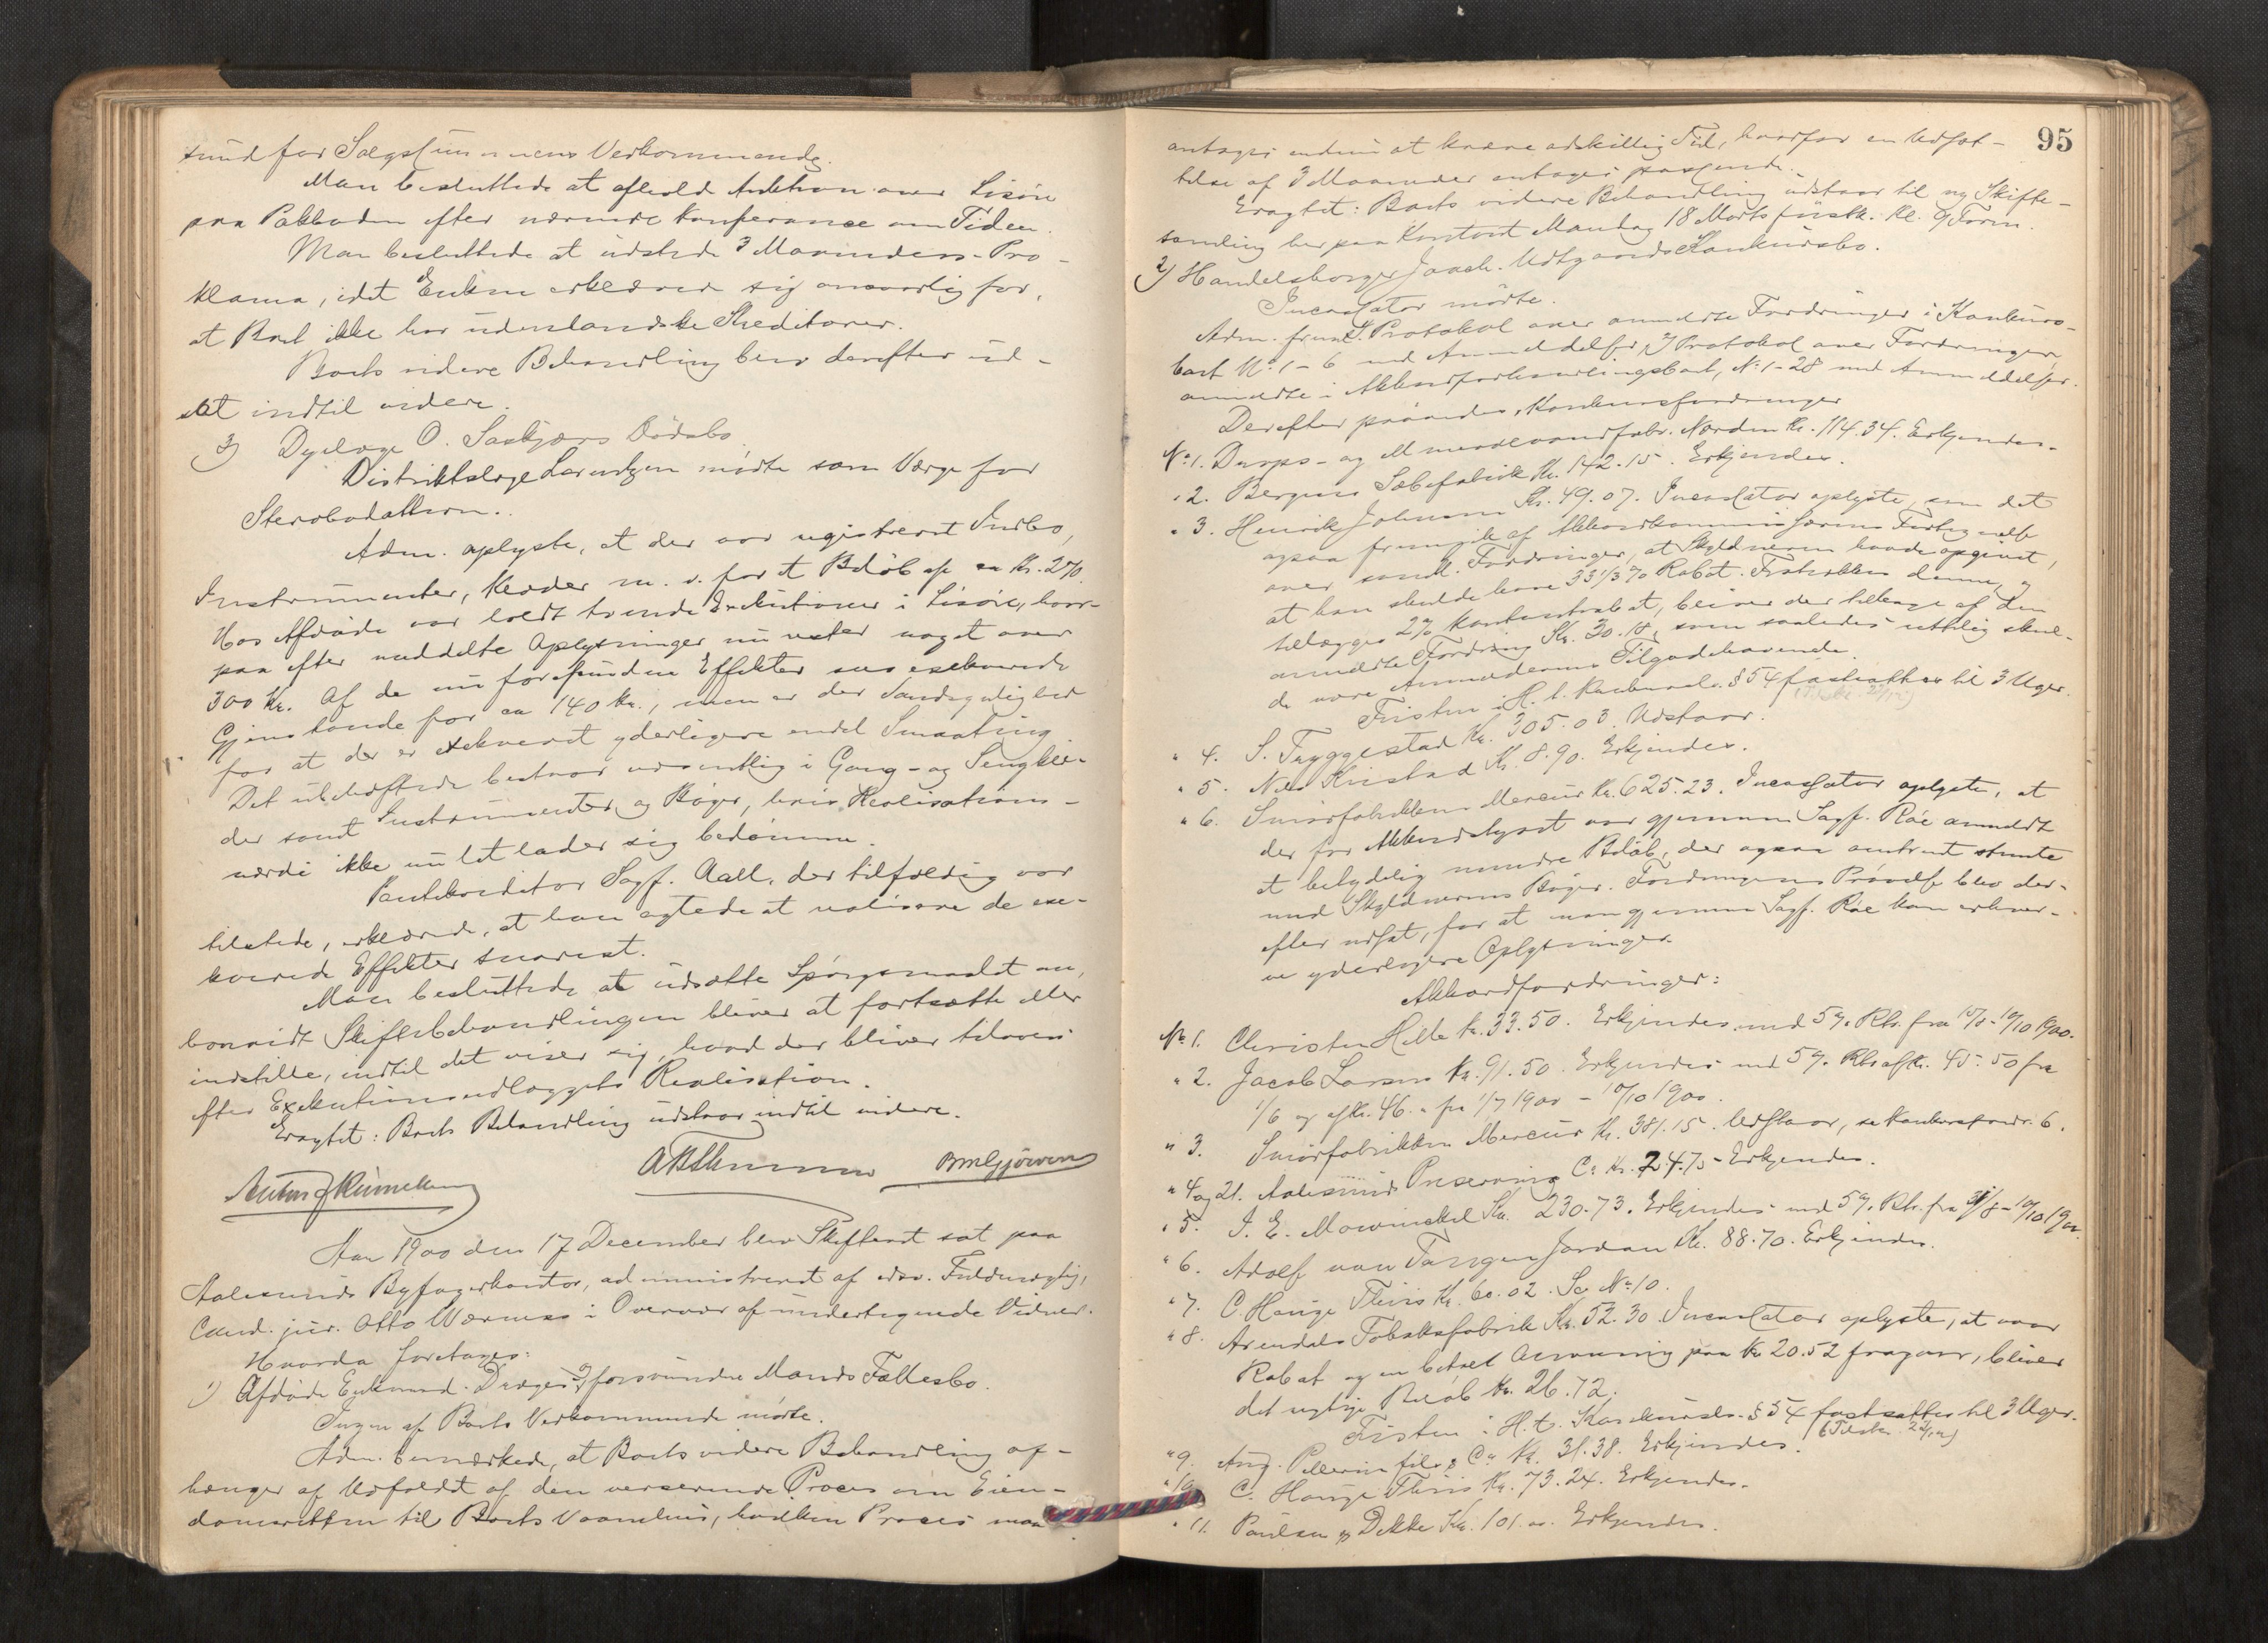 sund for Salgssummens Vedkommende.
Man besluttede at afholde Auktion over Lösöre
paa Pakboden efter nærmere Konferance om Tiden.
Man besluttede at udstede 3 Maaneders Pro-
klama, idet Enken erklærer sig ansvarlig for,
at Boet ikke har udenlandske Kreditorer.
Boets videre Behandling blev derefter ud-
sat indtil videre.
3) Dyrlæge O. Saxbjørs Dödsbo.
Distriktslæge Larentzen mödte som Værge for
Stervbodatteren.
Adm. oplyste, at der var registreret Indbo,
Instrumenter, Klæder m. v. for et Belöb af ca Kr. 270.
Hos Afdöde var holdt trende Exekutioner i Lösöre, hvor-
paa efter meddelte Oplysninger nu rester noget over
300 Kr. Af de nu forefundne Effekter sees exekverede
Gjenstande for ca 140 Kr., men er der Sandsynlighed
for at der er exekveret yderligere endel Smaating.
Det ubehæftede bestaar væsentlig i Gang- og Sengklæ-
der samt Instrumenter og Böger, hvis Realisations-
værdi ikke nu let lader sig bedömme.
Pantekreditor Sagf. Aall, der tilfældig var
tilstede, erklærede, at han agtede at realisere de exe-
kverede Effekter snarest.
Man besluttede at udsætte Spörgsmaalet om,
hvorvidt Skiftebehandlingen bliver at fortsætte eller
indstille, indtil det viser sig, hvad der bliver tilovers
efter Exekutionsudlæggets Realisation.
Eragtet: Boets Behandling udstaar indtil videre.
Aar 1900 den 17 December blev Skifteret sat paa
Aalesunds Byfogedkontor, administreret af edsv. Fuldmægtig,
Cand. jur. Otto Wærness i Overvær af undertegnede Vidner.
Hvorda foretages:
1) Afdöde Enkemad. Dræges & forsvundne Mands Fællesbo.
Ingen af Boets Vedkommende mödte.
Adm. bemærkede, at Boets videre Behandling af-
hænger af Udfaldet af den verserende Proces om Eien-
domsretten til Boets Vaanehus, hvilken Proces maa
95
antages endnu at kræve adskillig Tid, hvorfor en Udsæt-
telse af 3 Maaneder antages passende.
Eragtet: Boets videre Behandling udstaar til ny Skifte-
samling her paa Kontoret Mandag 18 Marts förstk. Kl. 9 Form.
2) Handelsborger Joach. Udtgaards Konkursbo.
Incassator mödte.
Adm. freml. 1) Protokol over anmeldte Fordringer i Konkurs-
boet No 1-6 med Anmeldelser, 2) Protokol over Fordringer,
anmeldte i Akkordforhandlingsboet, No 1-28 med Anmeldelser.
Derefter prövedes Konkursfordringer
No 1. Drops- og Mineralvandfabr. Norden Kr. 114.34. Erkjendes.
" 2. Bergens Sæbefabrik Kr. 142.15. Erkjendes.
" 3. Henrik Johnsen Kr. 49.07. Incassator oplyste, som det
ogsaa fremgik af Akkordkommissærens Fortegnelse
over samtl. Fordringer, at Skyldneren havde opgivet,
at han skulde have 33 1/3 % Rabat. Fratrækkes denne, og
tillægges 2% Kontantrabat, bliver der tilbage af den
anmeldte Fordring Kr. 30.18, som saaledes rettelig skul-
de være Anmelderens Tilgodehavende.
Fristen i H. t. Konkursl. § 54 fastsættes til 3 Uger.
" 4. S. Tryggestad Kr. 305.03. Udstaar.
" 5. Nils Kristad Kr. 8.90. Erkjendes.
" 6. Smörfabrikken Mercur Kr. 625.23. Incassator oplyste, at
der for Akkordstyret var gjennem Sagf. Röe anmeldt
et betydelig mindre Belöb, der ogsaa omtrent stemte
med Skyldnerens Böger. Fordringens Prövelse blev der-
efter udsat, for at man gjennem Sagf. Röe kan erhver-
ve yderligere Oplysninger.
Akkordfordringer:
No 1. Christen Hille Kr. 33.50. Erkjendes med 5% Rtr. fra 10/8-10/10 1900.
" 2. Jacob Larsen Kr. 91.50. Erkjendes med 5% Rtr. af Kr. 45.50 fra
1/6 og af Kr. 46. " fra 1/7 1900 - 10/10 1900.
" 3. Smörfabrikken Mercur Kr. 381.15. Udstaar, se Konkursfordr. 6.
" 4 og 21. Aalesunds Preserving Co Kr. 24.75 Erkjendes.
" 5. I. E. Mowinckel Kr. 230.73. Erkjendes med 5% Rtr. fra 31/8-10/10 1900.
" 6. Adolf van Tangen Jordan Kr. 88.70. Erkjendes.
" 7. C. Hauge Thiis Kr. 60.02. Se No 10.
" 8. Arendals Tobaksfabrik Kr. 52.30 Incassator oplyste, at naar
Rabat og en betalt Anvisning paa Kr 20.52 fragaar, bliver
det rigtige Belöb Kr. 26.72.
Fristen i H. t. Konkursl. § 54 fastsættes til 3 Uger.
" 9. Aug. Pellerin fils & Co Kr. 31.38. Erkjendes.
" 10. C. Hauge Thiis Kr. 73.24. Erkjendes.
" 11. Paulsen & Dekke Kr. 101.00. Erkjendes.